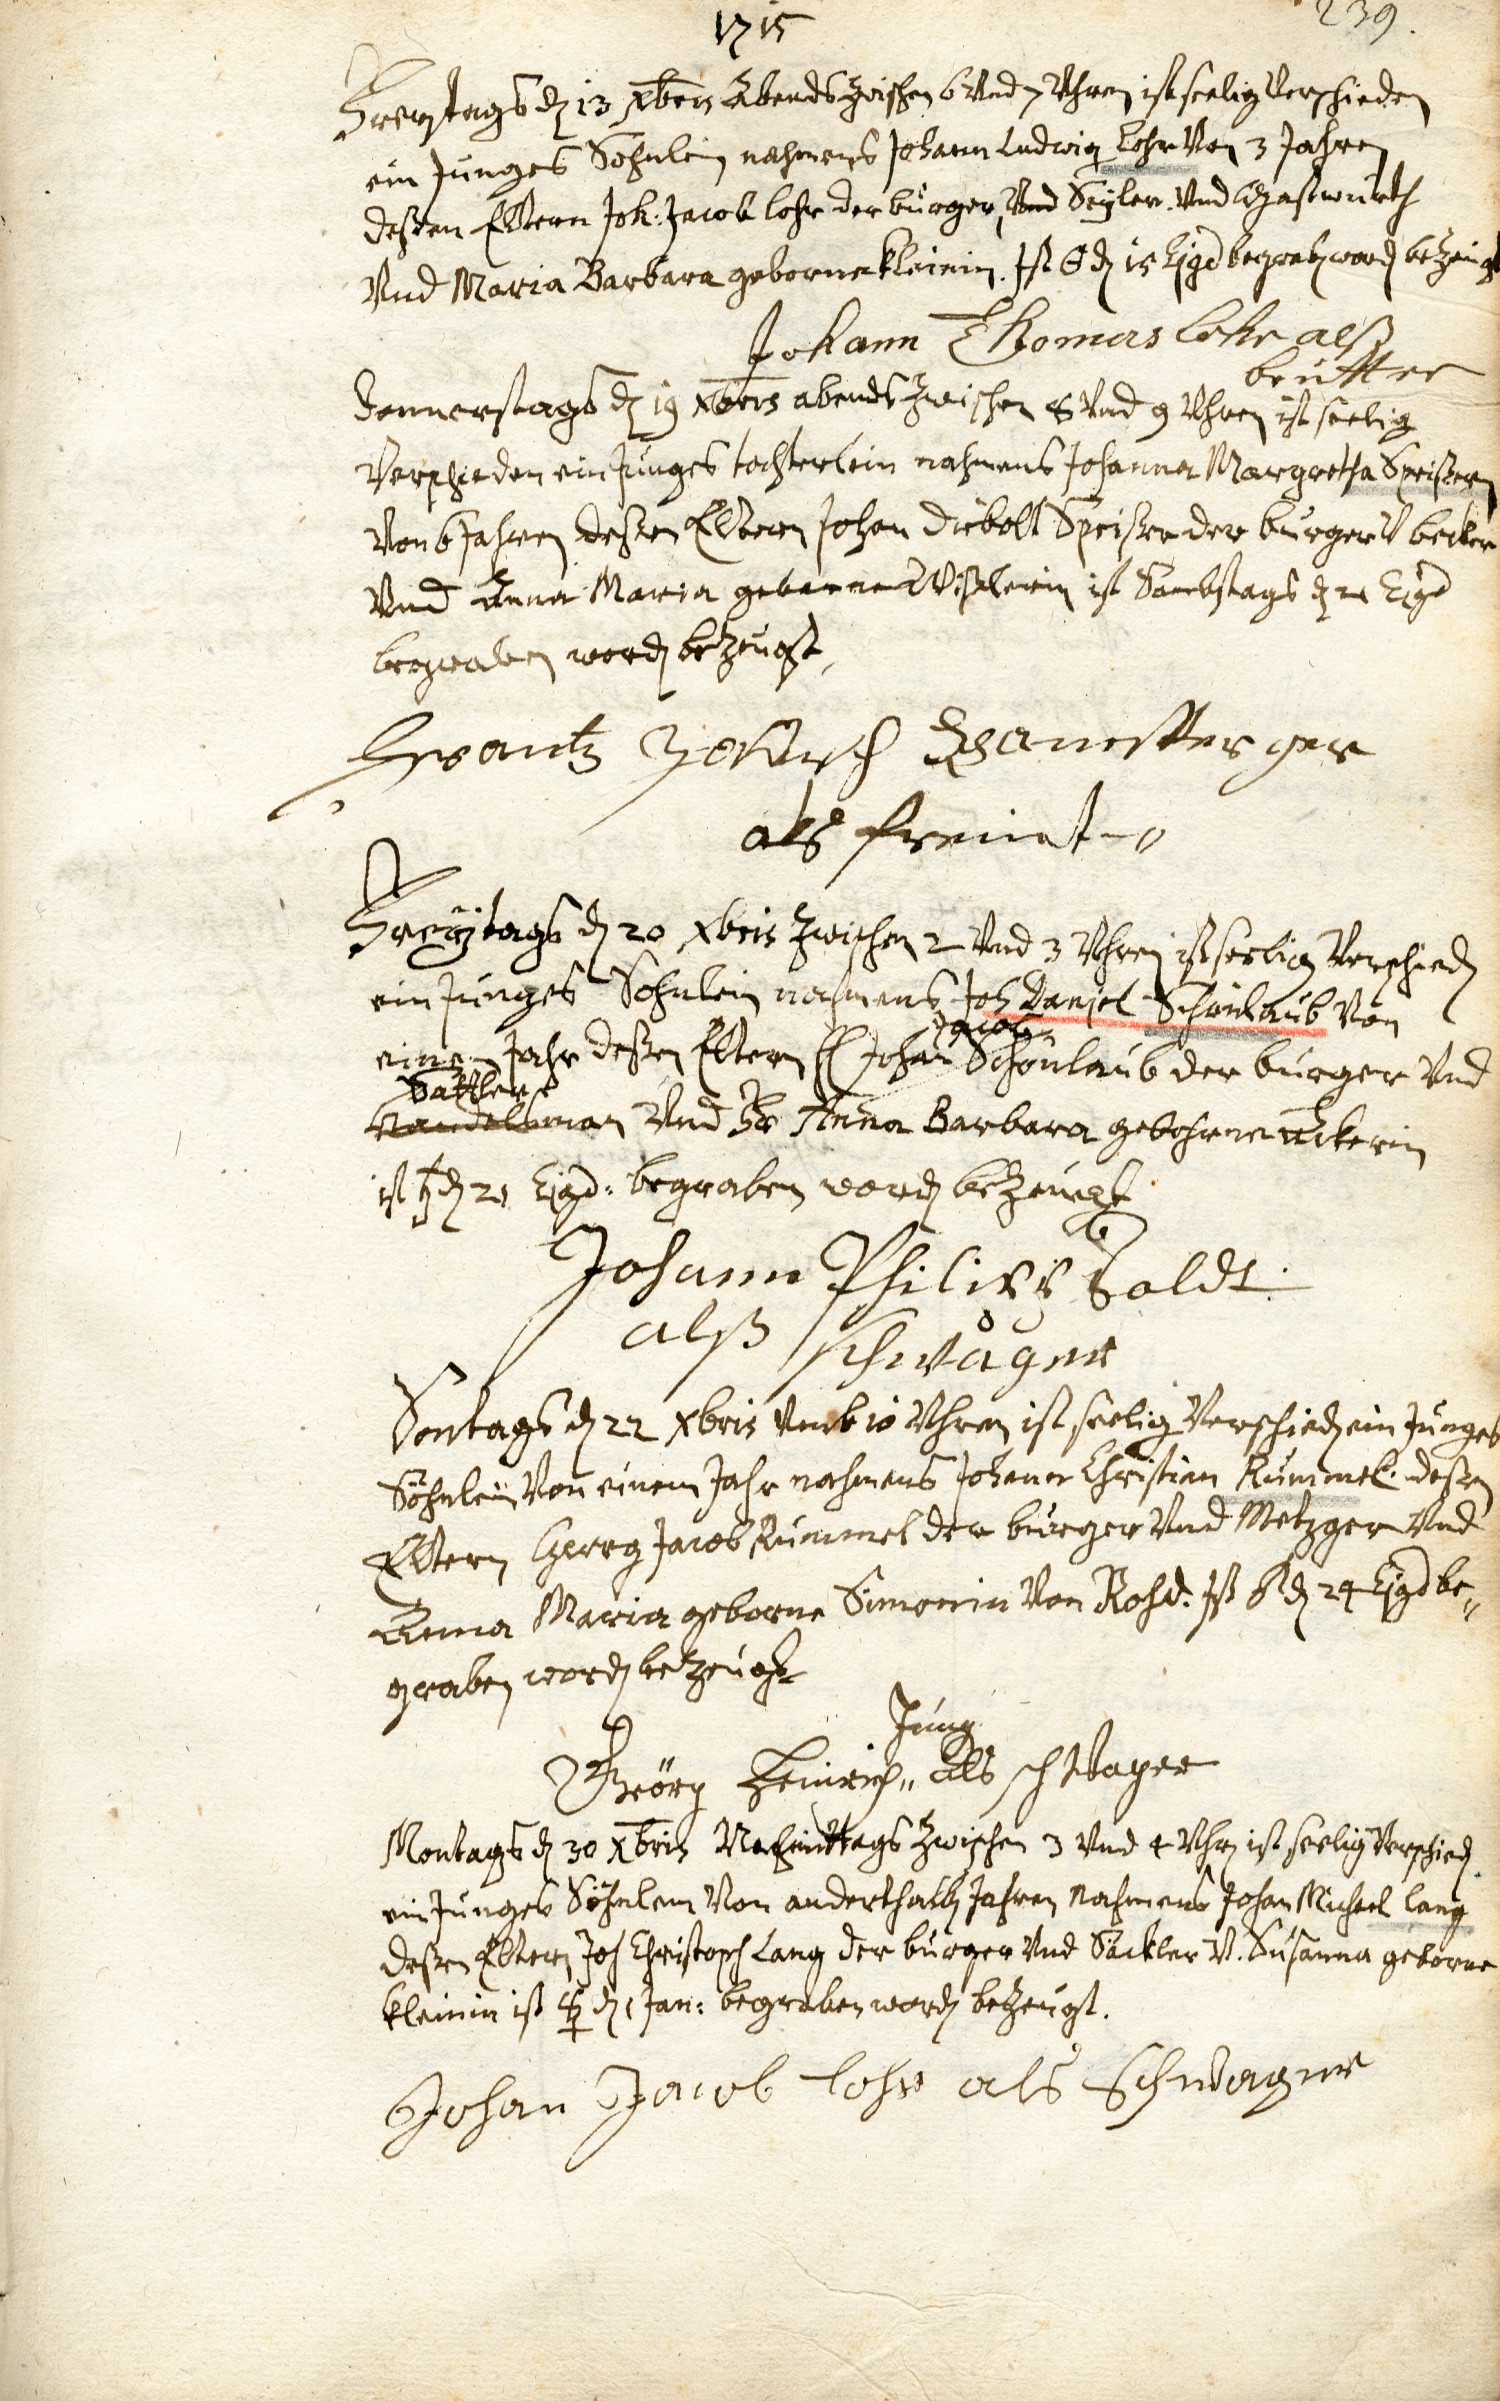 1715
239.
Freytags d 13 Xbris Abends zwischen 6 Und 7 Uhren ist seelig Verschieden
ein Junges Söhnlein nahmens Johann Ludwig Lohr Von 3 Jahren
deßen Eltern Joh: Jacob Lohr der burger, Und Seyler Und Gastwürth
Und Maria Barbara geborne Kleinin. Ist d 15 Ejgd begrab word bezeügt
Johann Thomas Lohr alß
brutter
Donnerstags d 19 Xbris abends zwischen 8 Und 9 Uhren ist seelig
Verschieden ein Junges tochterlein nahmens Johanna Margretha Speißern
Von 6 Jahren deßen Eltern Johan Diebolt Speißer der burger V becker
Und Anna Maria geborne ist Sambstags d 21 Ejgd
begraben word bezeügt,
Frantz
als freünt
Freytags d 20 Xbris zwischen 2 Und 3 Uhren ist seelig Verschied
ein Junges Söhnlein nahmens Joh Daniel Schönlaub Von
Jacob
einem Jahr deßen Eltern H Johan Schönlaub der burger Und
Sattler
Handelsman Und Fr Anna Barbara gebohrne Eckerin
ist ♄ d 21 Ejgd: begraben word bezeügt
Johann Philips Boldt
alß schwåger
Sontags d 22 Xbris Umb 10 Uhren ist seelig Verschied ein Junges
Söhnlein Von einem Jahr nahmens Johann Christian Kummel. deßen
Eltern Georg Jacob Kummel der burger Und Metzger Und
Anna Maria geborne Simonin Von Rohd. Ist ♂ d 24 Ejgd be„
graben word bezeügt
Jung
Georg Heinrich „ als schwager
Montags d 30 Xbris Nachmittags zwischen 3 Und 4 Uhr ist seelig Verschied
ein Junges Söhnlein Von anderthalb Jahren Nahmens Johan Michael Lang
deßen Eltern Joh Christoph Lang der burger Und Säckler V. Susanna geborne
Kleinin ist ☿ d 1 Jan: begraben word bezeügt.
Johan Jacob Lohr als Schwager